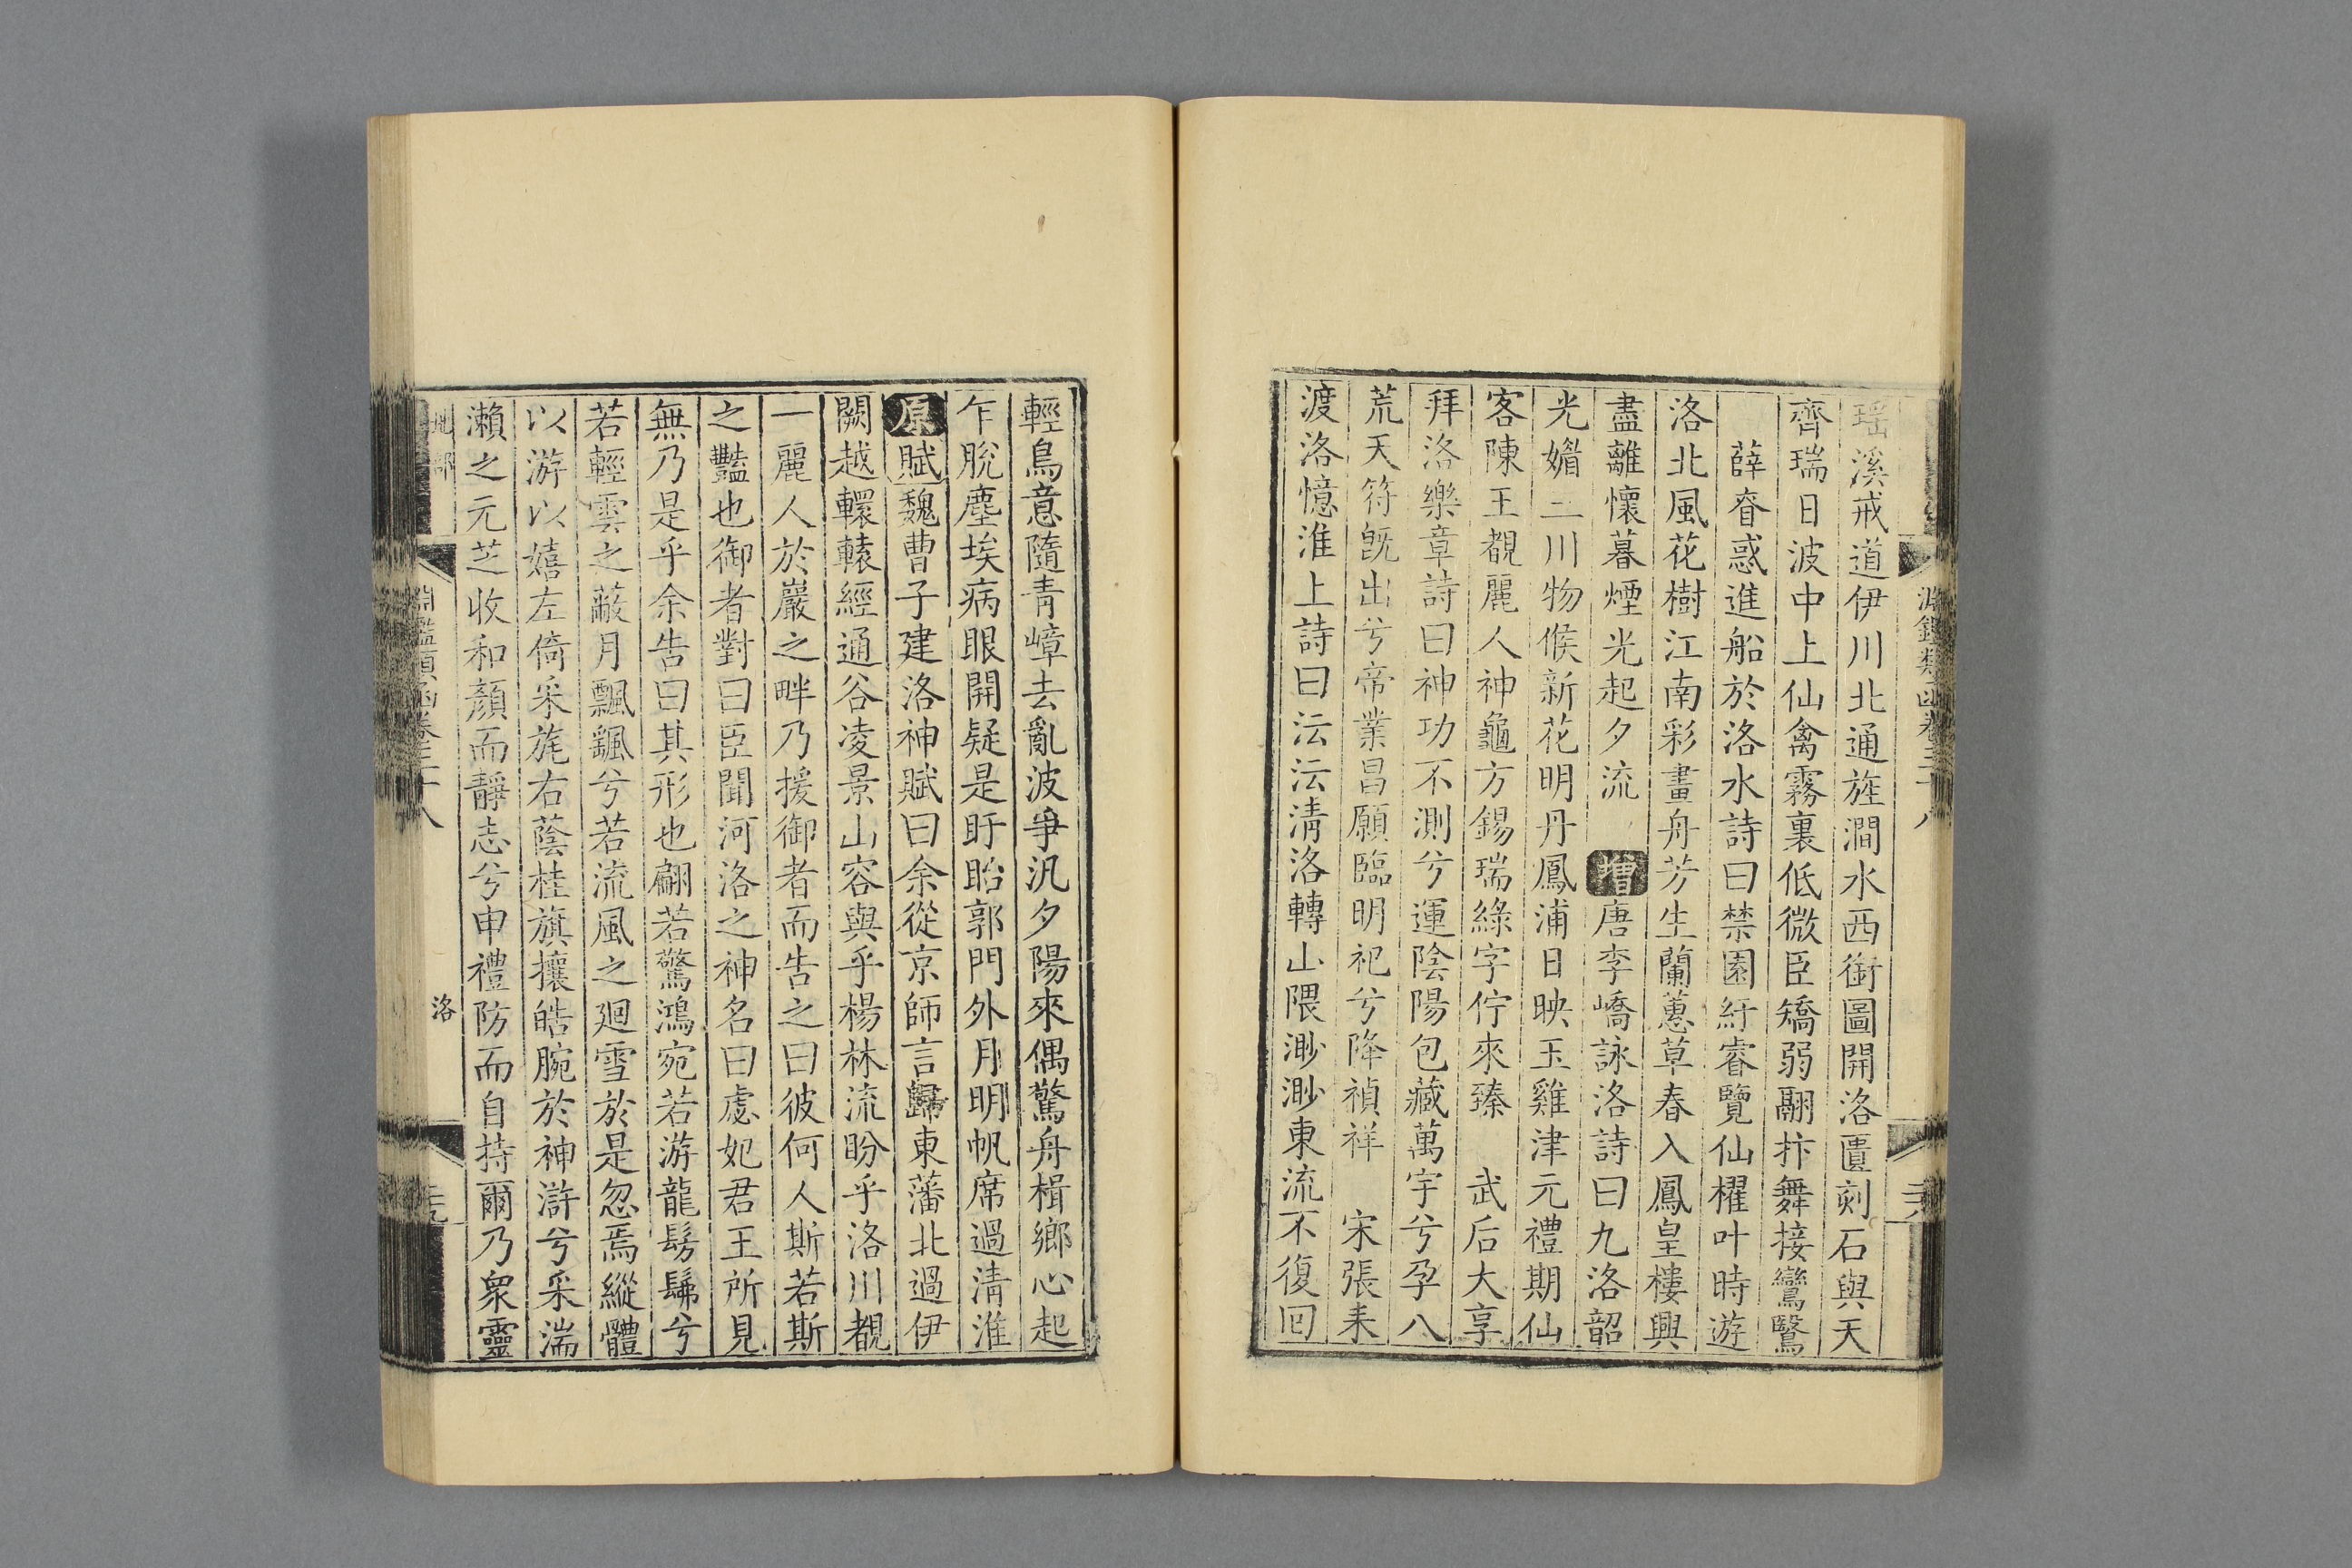 瑶溪戒道伊川北通旌澗水西銜圖開洛匱刻石與天
齊瑞日波中上仙禽霧裏低微臣矯弱翮抃舞接鸞鷖
薛眘惑進船於洛水詩曰禁園紆睿覽仙櫂叶時遊
洛北風花樹江南彩畫舟芳生蘭蕙草春入鳳皇樓興
盡離懷暮煙光起夕流 增唐李嶠詠洛詩曰九洛韶
光媚三川物候新花明丹鳳浦日映玉雞津元禮期仙
客陳王覩麗人神龜方錫瑞綠字佇來臻 武后大享
拜洛樂章詩曰神功不測兮運陰陽包藏萬宇兮孕八
荒天符旣出兮帝業昌願臨明祀兮降禎祥 宋張耒
渡洛憶淮上詩曰沄沄清洛轉山隈渺渺東流不復回
淵鑑類函卷三十八
輕鳥意隨青嶂去亂波爭汎夕陽來偶驚舟楫鄉心起
乍脫塵埃病眼開疑是盱眙郭門外月明帆席過清淮
原賦魏曹子建洛神賦曰余從京師言歸東藩北過伊
闕越轘轅經通谷凌景山容與乎楊林流盼乎洛川覩
一麗人於巖之畔乃援御者而告之曰彼何人斯若斯
之豔也御者對曰臣聞河洛之神名曰虙妃君王所見
無乃是乎余告曰其形也翩若驚鴻宛若游龍髣髴兮
若輕雲之蔽月飄颻兮若流風之廻雪於是忽焉縱體
以游以嬉左倚采旄右蔭桂旗攘皓腕於神滸兮采湍
瀨之元芝收和顏而靜志兮申禮防而自持爾乃衆靈
地部
淵鑑類函卷三十八
洛